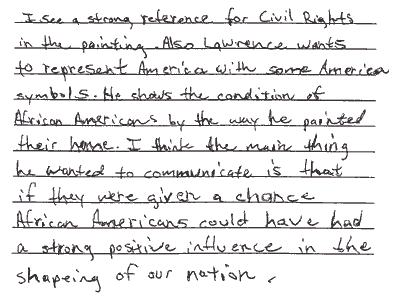 I see a strong reference for Civil Rights
in the painting. Also Lawrence wants
to represent America with some America
symbols. He shows the condition of
African Americans by the way he painted
their home. I think the main thing
he wanted to communicate is that
if they were given a chance
African Americans could have had
a strong positive influence in the
shapeing of our nation.